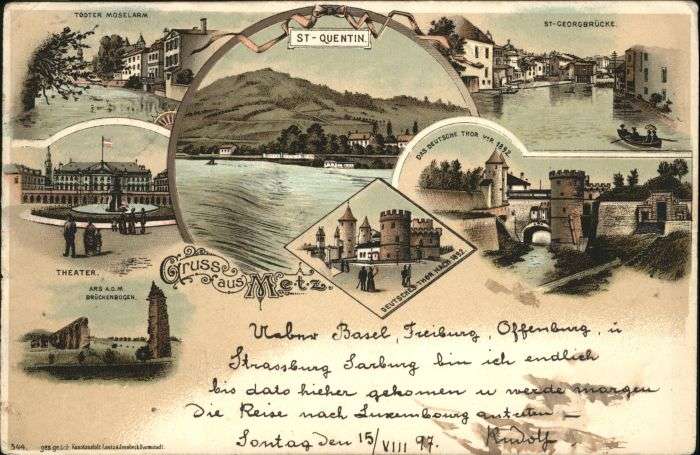 TODTER MOSELARM
ST-QUENTIN.
ST-GEORGBRÜCKE.
DAS DEUTSCHE THOR VOR 1892.
THEATER.
DEUTSCHES-THOR NACH 1892.
Gruss aus Metz.
ARS A.D.M.
BRÜCKENBOGEN.
Ueber Basel, Freiburg, Offenburg, u
Strassburg Sarburg bin ich endlich
bis dato hieher gekomen u werde morgen
Die Reise nach Luxembourg antreten –
Sontag den 15/VIII 97. Rudolf
544 ges. gesch. Kunstanstalt